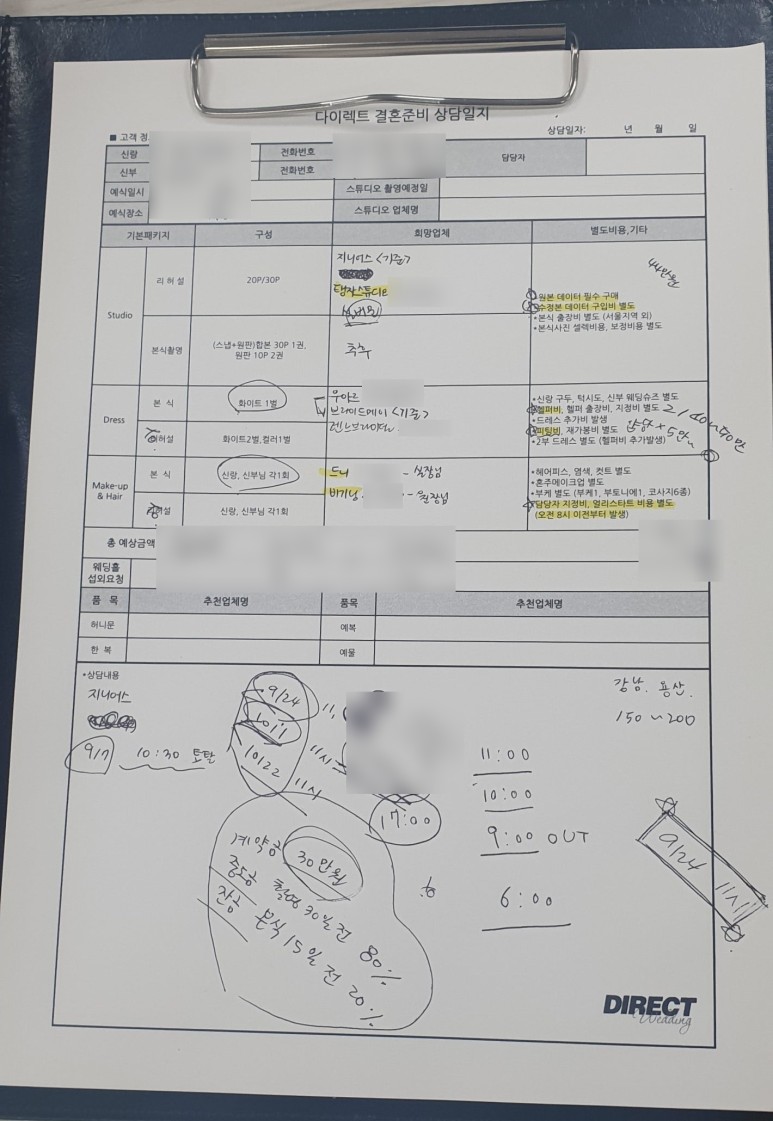 다이렉트 결혼준비 상담일지
상담일자: 년 월 일
■ 고객 정
신랑 전화번호 담당자
신부 전화번호
예식일시 스튜디오 촬영예정일
예식장소 스튜디오 업체명
기본패키지 구성 희망업체 별도비용,기타
Studio
리허설 20P/30P
지니어스 <기준>
44만원
•원본 데이터 필수 구매
•수정본 데이터 구입비 별도
•본식 출장비 별도 (서울지역 외)
•본식사진 셀렉비용, 보정비용 별도
본식촬영
(스냅+원판)합본 30P 1권,
원판 10P 2권
추후
Dress
본 식 화이트 1벌
브라이드메이 <기준>
리허설 화이트2벌,컬러1벌
•신랑 구두, 턱시도, 신부 웨딩슈즈 별도
•헬퍼비, 헬퍼 출장비, 지정비 별도
•드레스 추가비 발생
•피팅비, 재가봉비 별도
•2부 드레스 별도 (헬퍼비 추가발생)
Make-up
& Hair
본 식 신랑, 신부님 각1회
드니 - 실장님
비기닝. - 원장님
리허설 신랑, 신부님 각1회
•헤어피스, 염색, 컷트 별도
•혼주메이크업 별도
•부케 별도 (부케1, 부토니에1, 코사지6종)
•담당자 지정비, 얼리스타트 비용 별도
(오전 8시 이전부터 발생)
총 예상금액
웨딩홀
섭외요청
품 목 추천업체명 품목 추천업체명
허니문 예복
한 복 예물
•상담내용
지니어스
9/24 11시
10/22 11시
9/7 10:30 토탈
강남. 용산.
150~200
11:00
10:00
9:00 OUT
6:00
17:00
계약금 30만원
중도금 촬영 30일 전 80%
잔금 본식 15일 전 20%
9/24 11시
DIRECT
Wedding